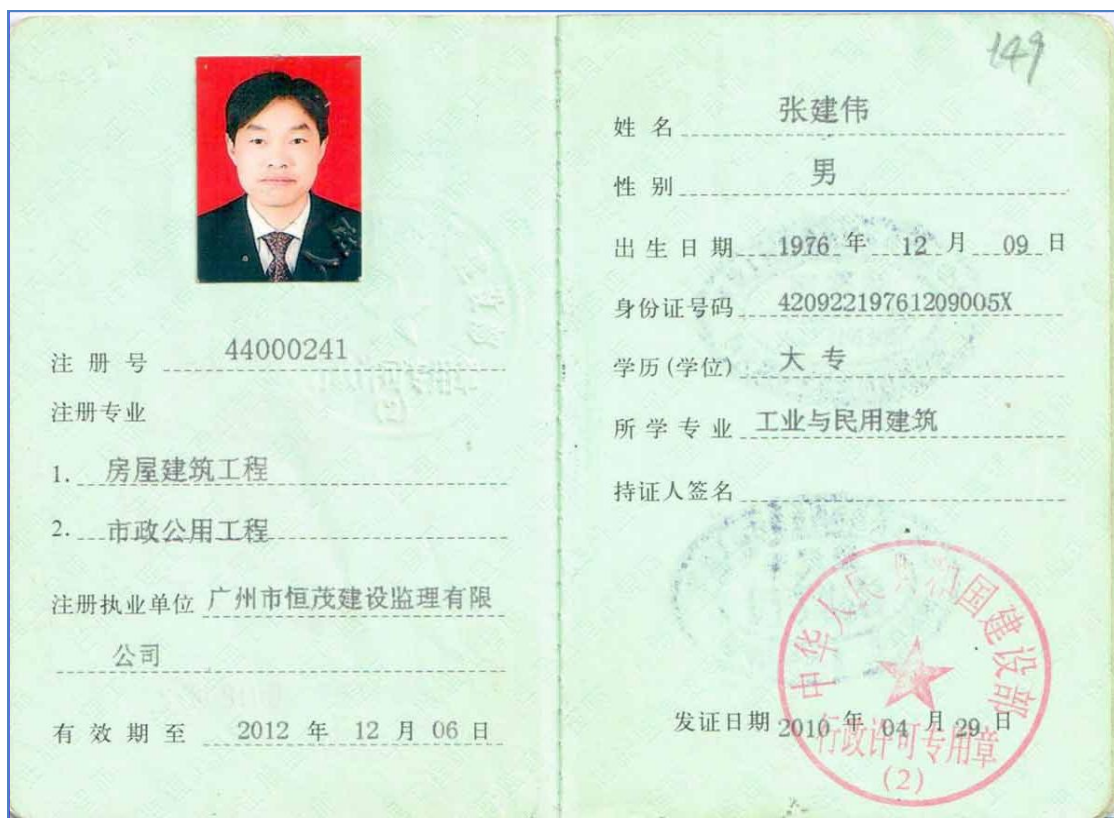 注 册 号 44000241
注册专业
1. 房屋建筑工程
2. 市政公用工程
注册执业单位 广州市恒茂建设监理有限
公司
有 效 期 至 2012 年 12 月 06 日
149
姓 名 张建伟
性 别 男
出 生 日 期 1976 年 12 月 09 日
身份证号码 42092219761209005X
学历(学位) 大 专
所 学 专 业 工业与民用建筑
持证人签名
发证日期 2010 年 04 月 29 日
中华人民共和国建设部
行政许可专用章
(2)